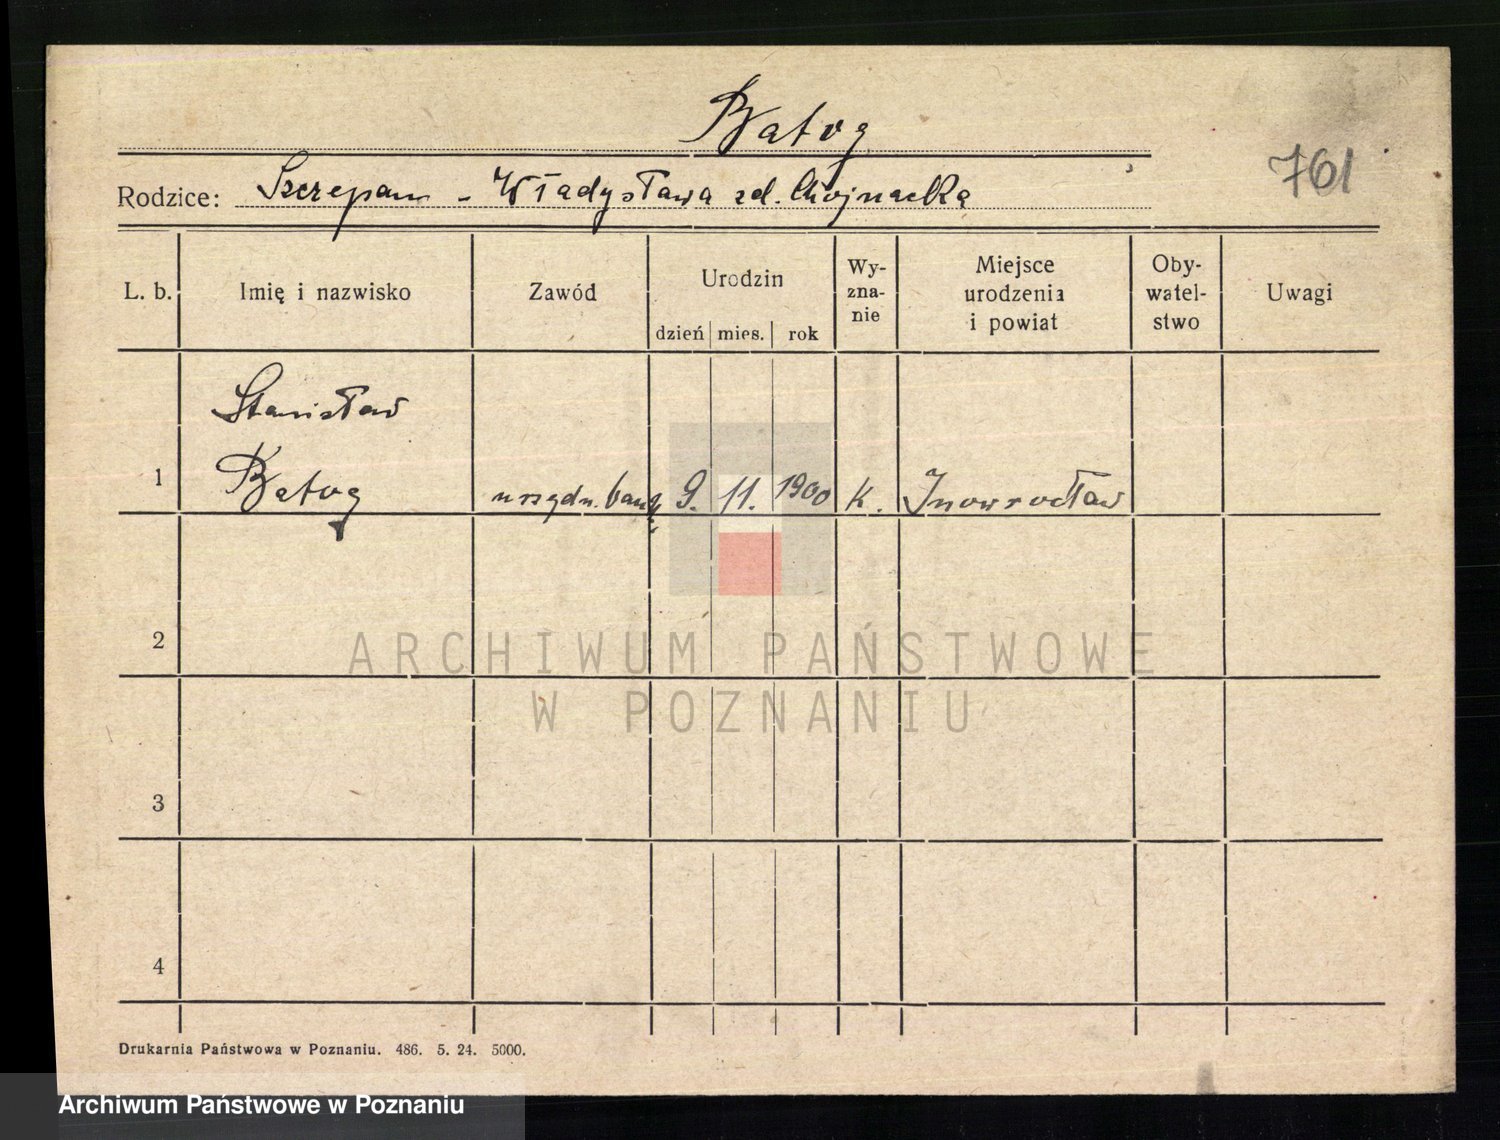 Batog
761
Rodzice: Szczepan - Władysława zd. Chojnacka
L. b. Imię i nazwisko Zawód Urodzin dzień mies. rok Wy-zna-nie Miejsce urodzenia i powiat Oby-watel-stwo Uwagi
Stanisław
1 Batog urzędn. bank. 9. 11. 1900 k. Inowrocław
2
3
4
ARCHIWUM PAŃSTWOWE
W POZNANIU
Drukarnia Państwowa w Poznaniu. 486. 5. 24. 5000.
Archiwum Państwowe w Poznaniu